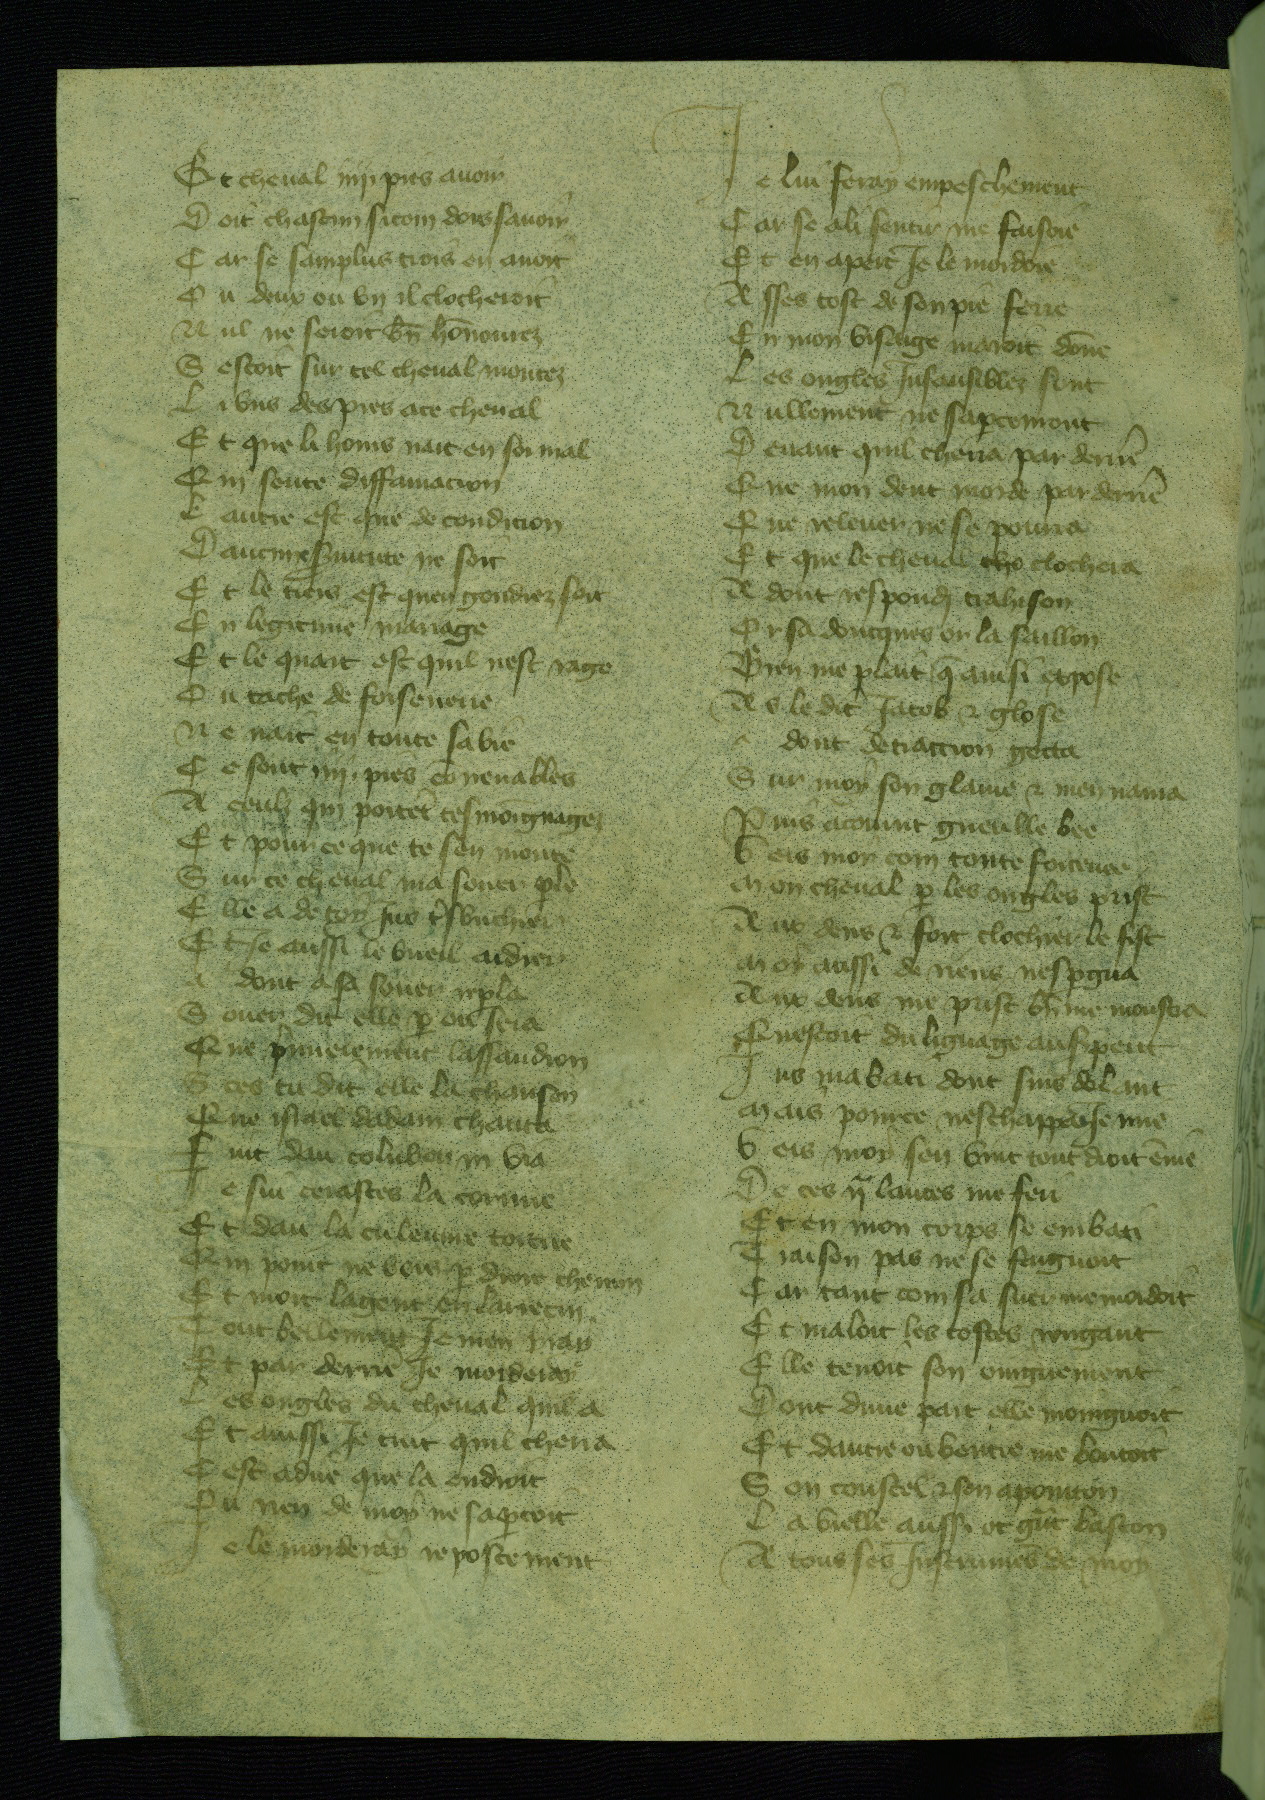 Et cheval iiij pies avoir
Doit chascun sicom dois savoir
Car se sanplus trois en avoit
Ou deux ou vn il clocheroit
Nul ne seroit bn honnourez
Sestoit sur tel cheval montez
Li vns des pies a ce cheval
Et que li homs nait en soi mal
Qui sente diffamacion
Lautre est que de condicion
Daucune servitute ne soit
Et le tiers est quengendrez soit
En legitime mariage
Et le quart est quil nest rage
Ou tache de forsenerie
Ne nait en toute sa vie
Ce sont iiij pies convenables
A ceulz qui portent tesmoignages
Et pour ce que te sen monte
Sur ce cheval ma soeur
Elle a de toy jus
Et Je aussi le vueil aidier
A dont a sa soeur
Soeur dit elle par ou sera
Que premierement lassaudron
Sces tu dit elle la chanson
Que israel dadam chanta
Fiat dan coluber in via
Je sui cerastes la cornue
Et dan la culeuvre tortue
Qui point ne vois par droit chemin
Et mort la gent en larrecin
Tout bellement Je men iray
Et par derrie Je morderay
Les ongles du cheval quil a
Et aussi Je cuit quil cherra
Cest a dire que la endroit
Ou rien de moy ne sapercoit
Je le morderay repostement
Je lui feray empeschement
Car se a li sentir me faisoie
Et en apert Je le mordoie
Asses tost de son pie ferre
En mon visaige maroit donne
Les ongles Insensibles sont
Nullement ne sapcevront
Devant quil cherra par derrie
Que mon dent morde par derrie
Que relever ne se pourra
Et que le cheval clochera
A dont respondi trahison
Or sa doncques or la saillon
Bien me plait que ainsi expose
As le dit Jacob & glose
A dont detraccion gecta
Sur moy son glaive & men navra
Puis acourut gueulle bee
Vers moy com toute forcenee
Mon cheval par les ongles prist
Aux dens & fort clochier le fist
Moy aussi de riens nespgna
Aux dens me prist bn me monstra
Questoit du lignage au serpent
Jus mabati dont suis dolant
Mais pour ce neschappe Je mie
Vers moy sen vint tout droit envie
De ces ij lances me feri
Et en mon corps se embati
Traison pas ne se feignoit
Car tant com sa suer me mordoit
Et maloit les costes rongant
Elle tenoit son oingnement
Dont dune part elle moingnoit
Et dautre ou ventre me boutoit
Son coustel & son apointon
La vielle aussi ot grant baston
A tous ses Instrumens de moy